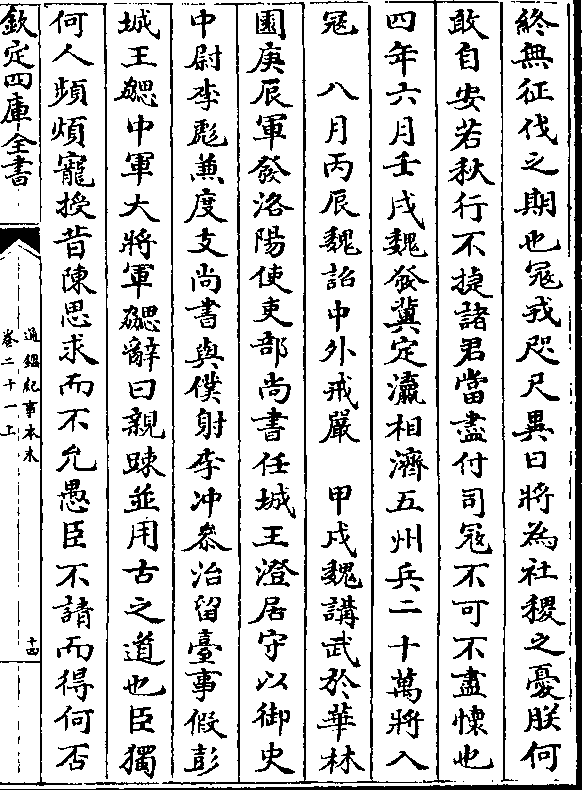 終無征伐之期也冦戎咫尺異日將為社稷之憂朕何
敢自安若秋行不捷諸君當盡付司冦不可不盡懷也
四年六月壬戌魏發冀定瀛相濟五州兵二十萬將入
冦　八月丙辰魏詔中外戒嚴　甲戌魏講武於華林
園庚辰軍發洛陽使吏部尚書任城王澄居守以御史
中尉李彪兼度支尚書與僕射李冲叅治留臺事假彭
城王勰中軍大將軍勰辭曰親踈並用古之道也臣獨
何人頻煩寵授昔陳思求而不允愚臣不請而得何否
欽定四庫全書
通鑑紀事本末
卷二十一上
十四